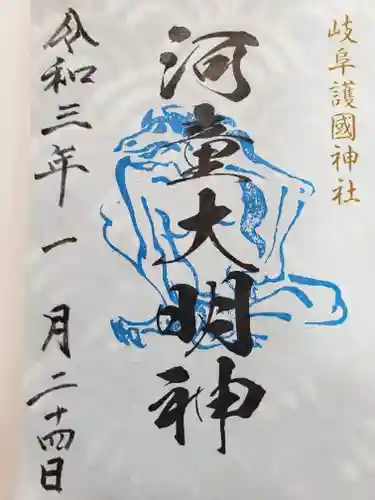 岐阜護國神社
河童大明神
令和三年一月二十四日